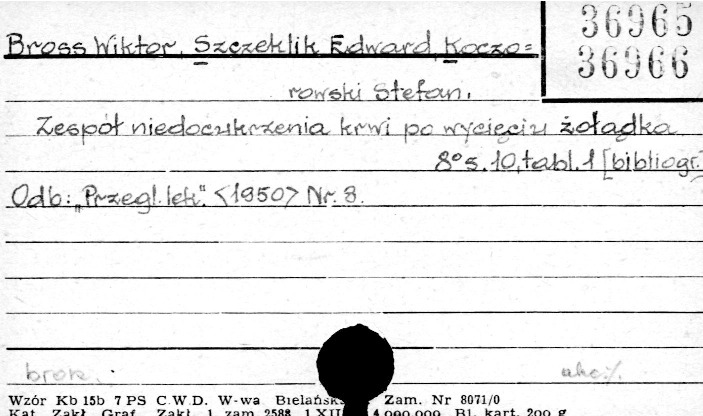 36965
36966
Bross Wiktor, Szczeklik Edward, Koczo=
rowski Stefan.
Zespół niedocukrzenia krwi po wycięciu żołądka
8° s. 10, tabl. 1 [bibliogr.]
Odb: "Przegl. lek". <1950> Nr. 8.
brosz.
Wzór Kb 15b 7 PS C.W.D. W-wa Zam. Nr 8071/0
Kat. Zakł. Graf. Zakł. 1 zam 2588 1 XII 4.000.000. Bl. kart. 200 g